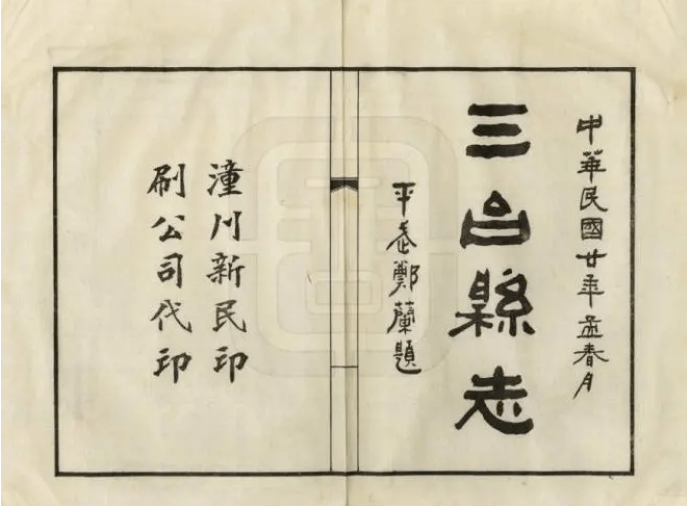 中華民國廿年孟春月
三台縣志
平武鄭蘭題
潼川新民印
刷公司代印